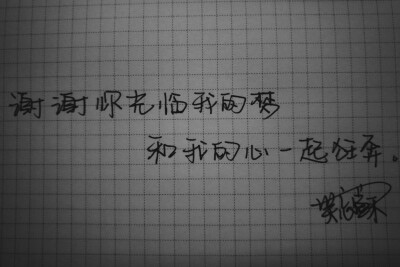 谢谢你光临我的梦
和我的心一起狂奔。